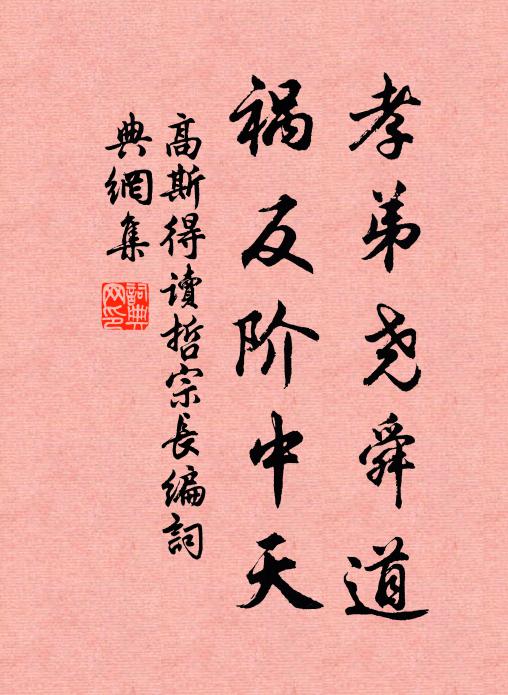 孝弟尧舜道
祸反阶中天
高斯得讀哲宗長编詞
典網集
詞典网印